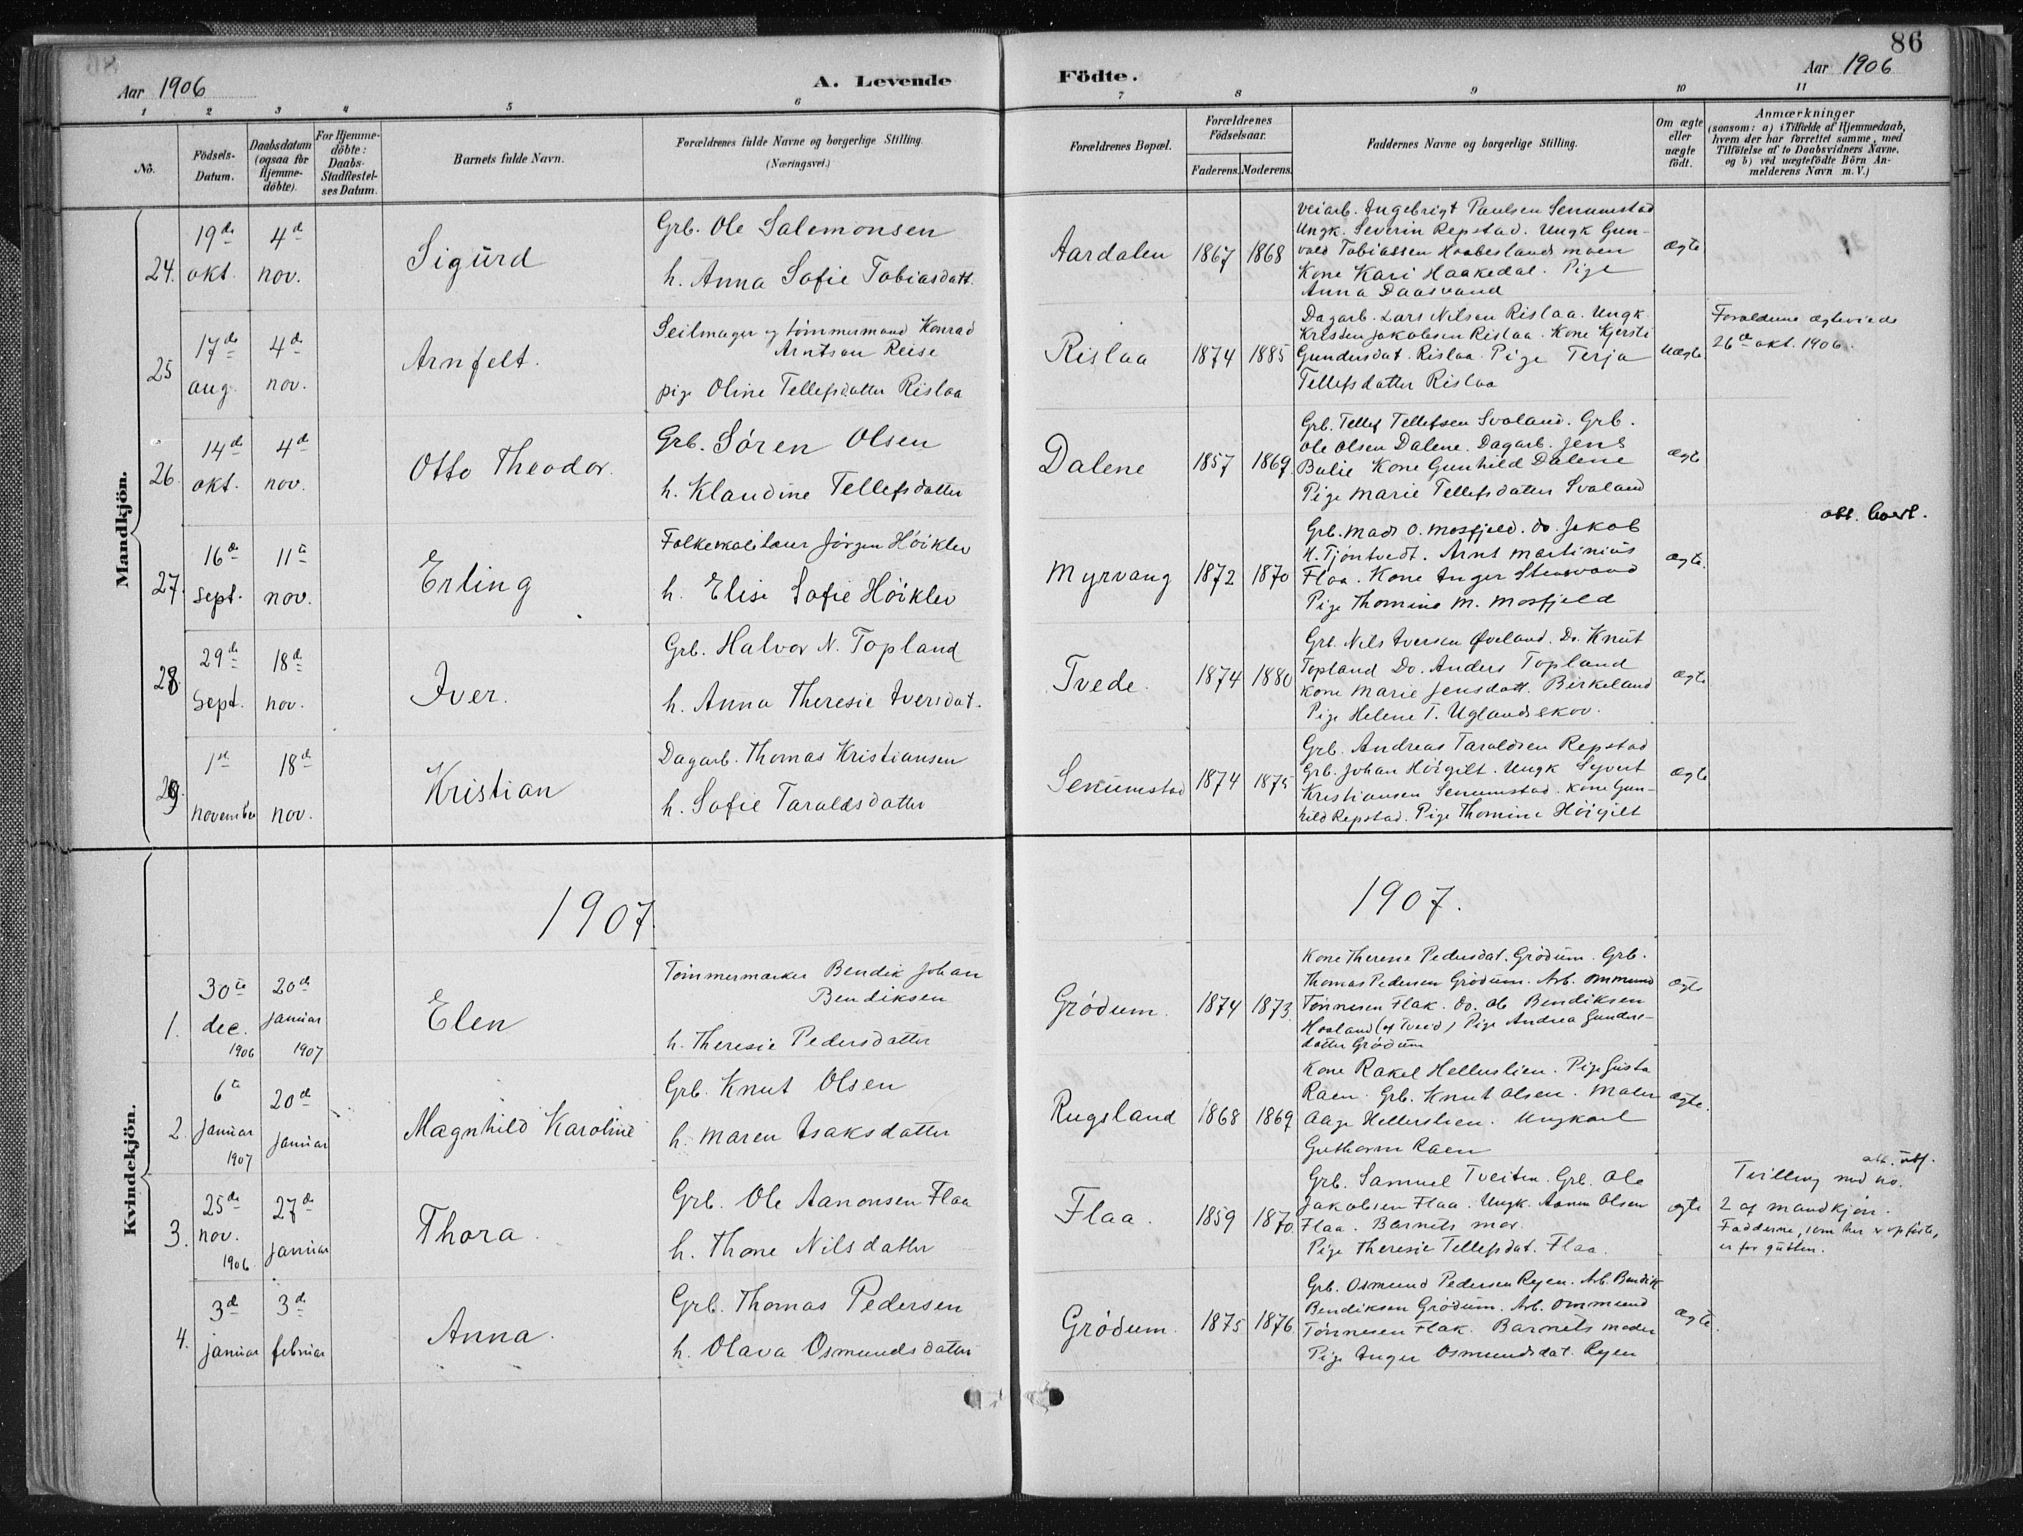 86
Aar 1906
A. Levende
Födte.
Aar 1906
1 2 3 4 5 6 7 8 9 10 11
No.
Födsels-
Datum.
Daabsdatum
(ogsaa for
Hjemme-
döbte).
For Hjemme-
döbte:
Daabs-
Stadfæstel-
ses Datum.
Barnets fulde Navn.
Forældrenes fulde Navne og borgerlige Stilling.
(Næringsvei.)
Forældrenes Bopæl.
Forældrenes
Födselsaar.
Faderens. Moderens.
Faddernes Navne og borgerlige Stilling.
Om ægte
eller
uægte
födt.
Anmærkninger
(saasom: a) i Tilfælde af Hjemmedaab,
hvem der har forrettet samme, med
Tilföielse af to Daabsvidners Navne,
og b) ved uægtefödte Börn An-
melderens Navn m. V.)
Mandkjön.
24.
19de
okt.
4de
nov.
Sigurd
Grb. Ole Salemonsen
h. Anna Sofie Tobiasdatt.
Aardalen
1867 1868
Veiarb. Ingebrigt Paulsen Senumstad
Ungk. Severin Repstad. Ungk Gun-
vald Tobiassen Haabeslandsmoen
Kone Kari Haakedal. Pige
Anna Daasvand
ægte
25
17de
aug.
4de
nov.
Arnfelt.
Seilmager og tømmermand Konrad
Arntsen Reise
pige Oline Tellefsdatter Rislaa
Rislaa
1874 1885
Dagarb. Lars Nilsen Rislaa. Ungk.
Kristen Jakobsen Rislaa. Kone Kjersti
Gundersdat. Rislaa. Pige Terja
Tellefsdatter Rislaa
Uægte
Forældrene ægteviede
26de okt. 1906.
26.
14de
okt.
4de
nov.
Otto Theodor.
Grb. Søren Olsen
h. Klaudine Tellefsdatter
Dalene
1857 1869.
Grb. Tellef Tellefsen Svaland. Grb.
Ole Olsen Dalene. Dagarb. Jens
Bulie Kone Gunhild Dalene
Pige Marie Tellefsdatter Svaland
ægte
27.
16de
Sept.
11te
nov.
Erling
Folkeskolelærer Jörgen Höiklev
h. Elise Sofie Höiklev
Myrvang
1872 1870
Grb. Mads O. Mosfjeld. Do. Jakob
K. Tjöntvedt. Arnt Martinius
Flaa. Kone Inger Stensvand
Pige Thomine M. Mosfjeld
ægte.
28.
29de
Sept.
18de
nov.
Iver.
Grb. Halvor N. Topland
h. Anna Theresie Iversdat.
Tvede.
1874 1880
Grb. Nils Iversen Øveland. Do. Knut
Topland Do. Anders Topland
Kone Marie Jensdatt. Birkeland
Pige Helene T. Uglandskov.
ægte
29.
1ste
november
18de
nov.
Kristian
Dagarb. Thomas Kristiansen
h. Sofie Taraldsdatter
Senumstad
1874 1875
Grb. Andreas Taraldsen Repstad
Grb. Johan Höigilt. Ungk Syvert
Kristiansen Senumstad. Kone Gun-
hild Repstad. Pige Thomine Höigilt
ægte
1907.
1907.
Kvindekjön.
1.
30te
dec.
1906
20de
januar
1907
Elen
Tömmermærker Bendik Johan
Bendiksen
h. Theresie Pedersdatter
Grödum.
1874 1873.
Kone Therese Pedersdat. Grödum. Grb.
Thomas Pedersen Grödum. Arb. Ommund
Tönnesen Flak. Do. Ole Bendiksen
Haaland (af Tveid) Pige Andrea Gunders-
datter Grödum
ægte
2.
6te
Januar
1907
20de
Januar
Magnhild Karoline
Grb. Knut Olsen
h. Maren Isaksdatter
Rugsland
1868 1869
Kone Rakel Hellerslien. Pige Gusta
Raen. Grb. Knut Olsen. Maler
Aage Hellerslien. Ungkarl
Guthorm Raen
ægte.
3.
25de
nov.
1906
27de
Januar
Thora.
Grb. Ole Aanonsen Flaa
h. Thone Nilsdatter
Flaa.
1859 1870.
Grb. Samuel Tveiten. Grb. Ole
Jakobsen Flaa. Ungk. Aanon Olsen
Flaa. Barnets mor.
Pige Theresie Tellefsdat. Flaa.
ægte
Tvilling med no.
2 af mandkjön.
Fadderne, som her er opförte,
er for gutten.
4.
3de
januar
3de
februar
Anna.
Grb. Thomas Pedersen
h. Olava Osmundsdatter
Grödum.
1875 1876
Grb. Osmund Pedersen Ryen. Arb. Bendik
Bendiksen Grödum. Arb. Ommund
Tönnesen Flak. Barnets moder
Pige Inger Osmundsdat. Ryen
ægte.